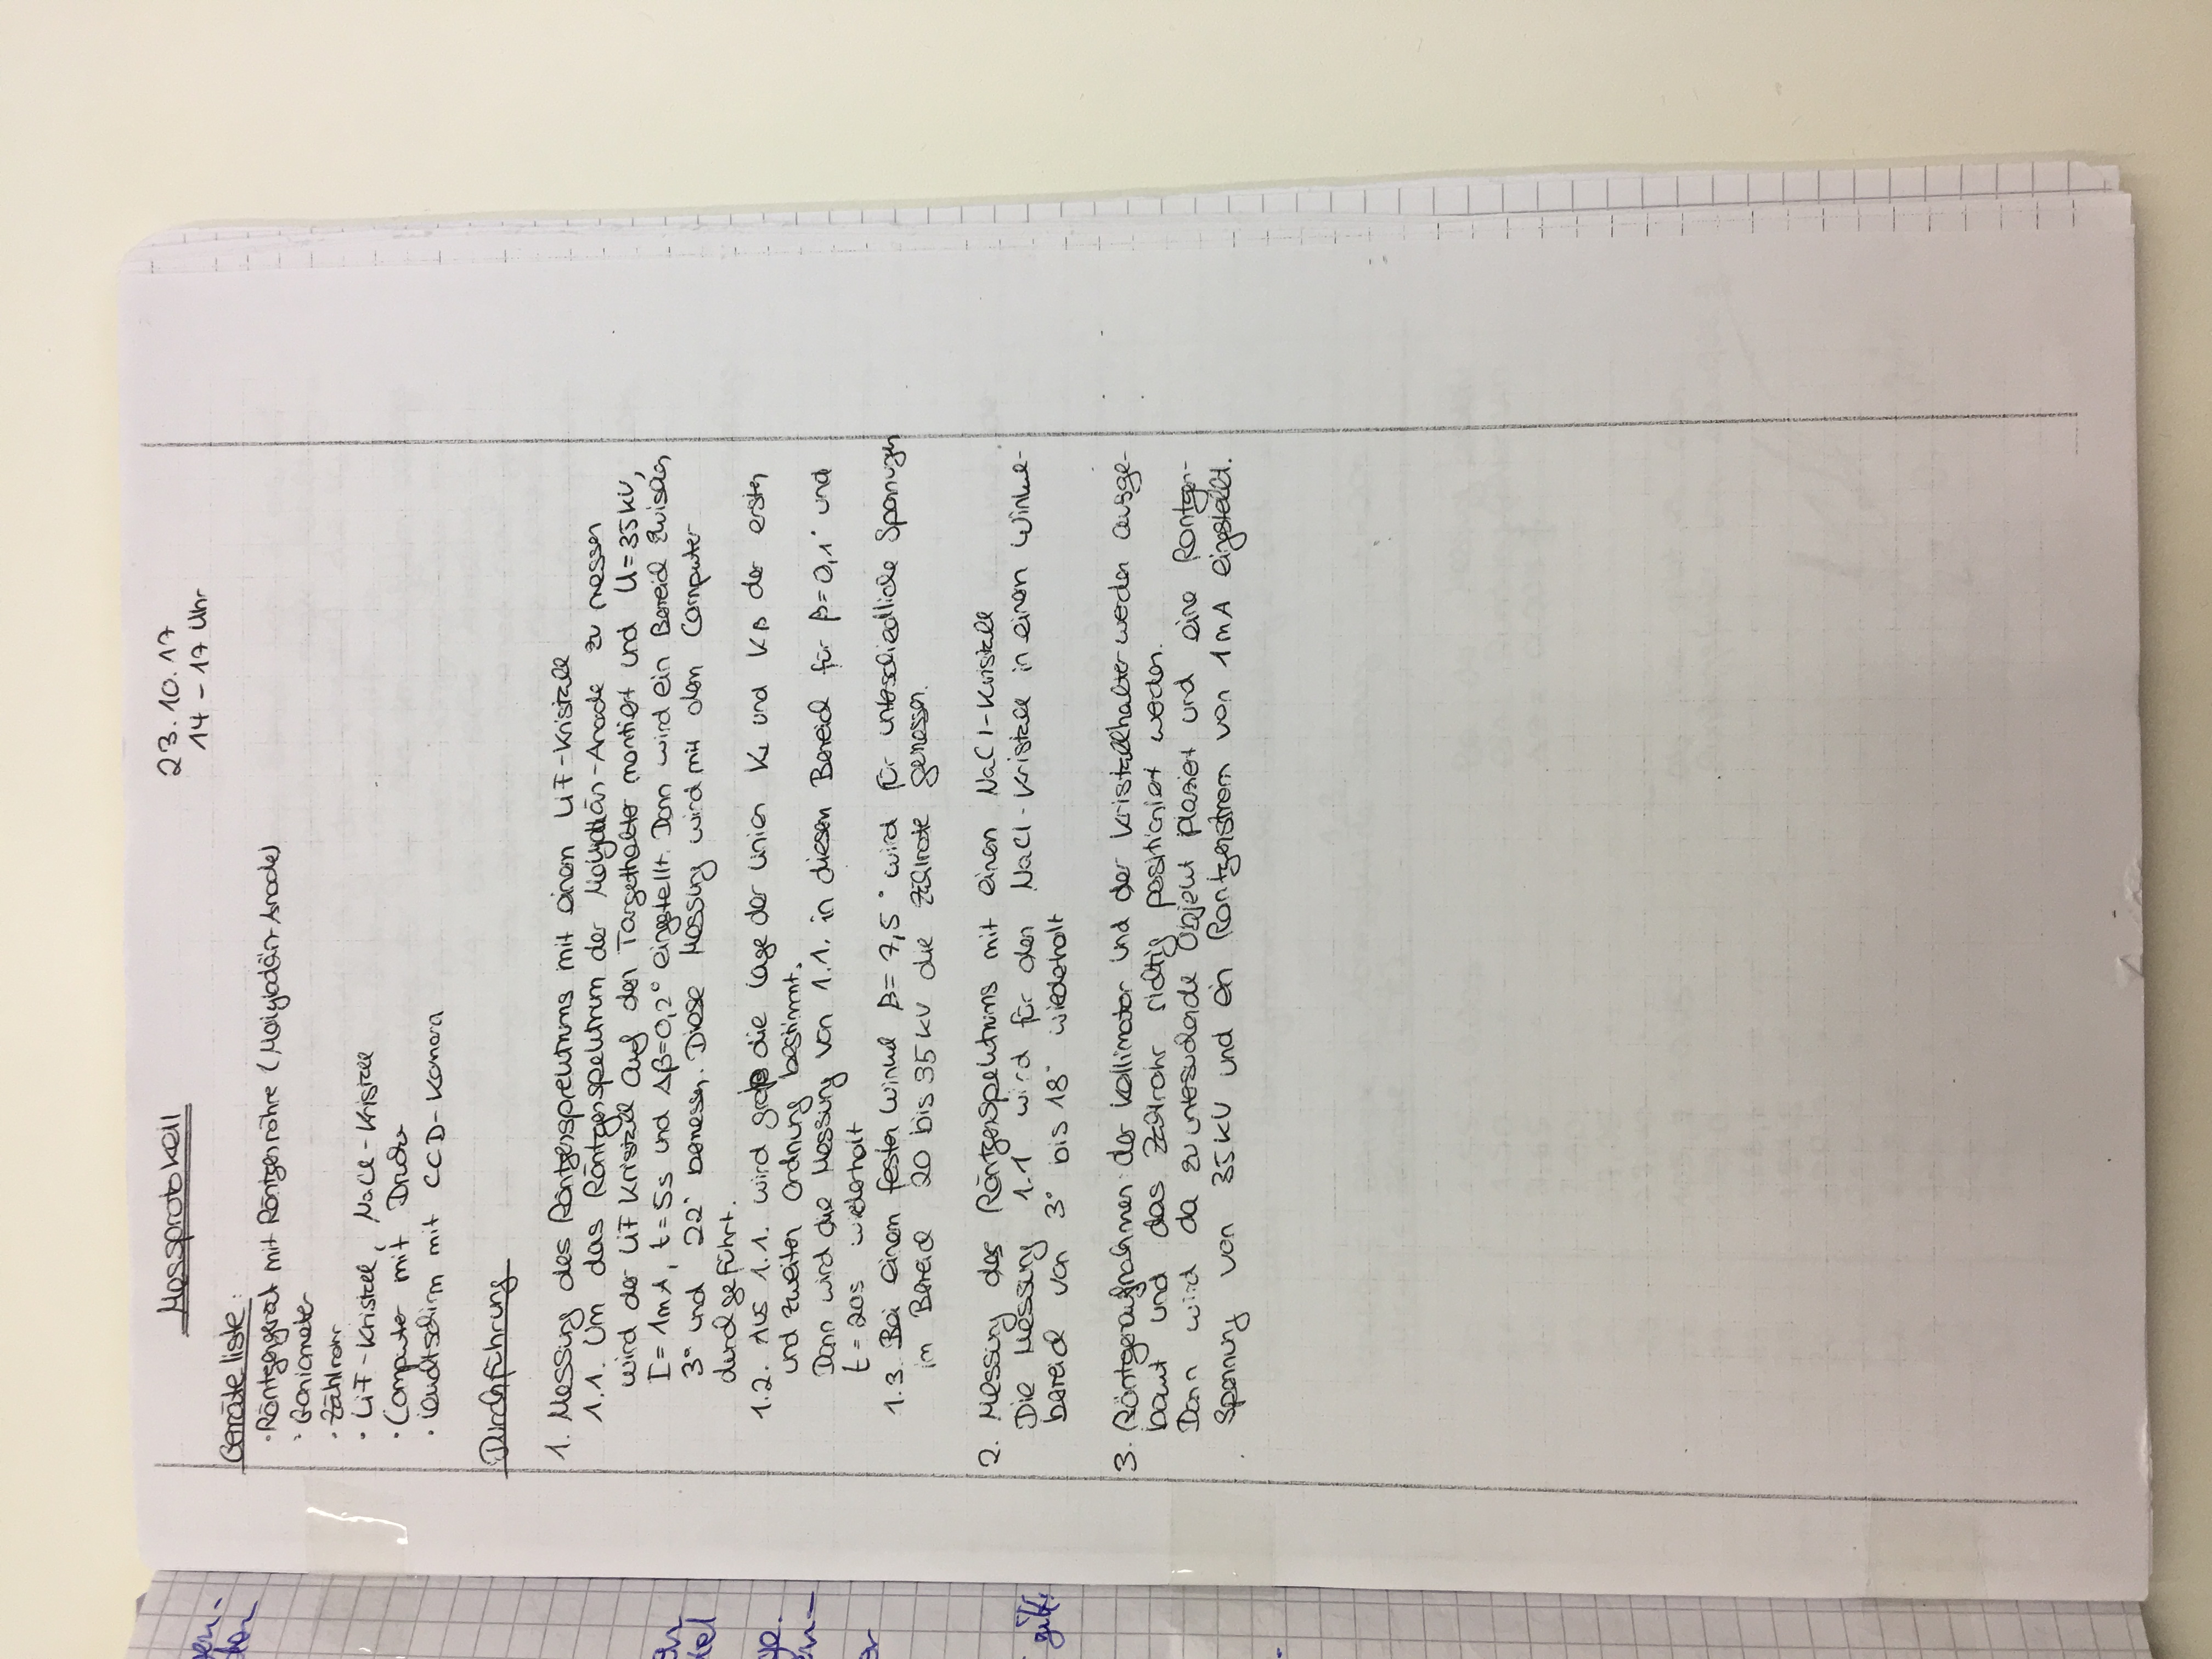 Messprotokoll
23.10.17
14 - 17 Uhr
Geräteliste:
· Röntgengerät mit Röntgenröhre (Molybdän-Anode)
· Goniometer
· Zählrohr
· LiF-Kristall, NaCl-Kristall
· Computer mit Drucker
· Leuchtschirm mit CCD-Kamera
Durchführung
1. Messung des Röntgensprektrums mit einem LiF-Kristall
1.1. Um das Röntgenspektrum der Molybdän-Anode zu messen
wird der LiF Kristall auf den Targethalter montiert und U=35kV,
I=1mA, t=5s und Δβ=0,2° eingestellt. Dann wird ein Bereich zwischen
3° und 22° bemessen. Diese Messung wird mit dem Computer
durchgeführt.
1.2. Aus 1.1. wird grob die Lage der Linien Kα und Kβ der ersten
und zweiten Ordnung bestimmt.
Dann wird die Messung von 1.1. in diesem Bereich für β=0,1° und
t=20s wiederholt
1.3. Bei einem festen Winkel β=7,5° wird für unterschiedliche Spannungen
im Bereich 20 bis 35kV die Zählrate gemessen.
2. Messung des Röntgenspektrums mit einem NaCl-Kristall
Die Messung 1.1 wird für den NaCl-Kristall in einem Winkel-
bereich von 3° bis 18° wiederholt
3. Röntgenaufnahmen: der Kollimator und der Kristallhalter werden ausge-
baut und das Zählrohr richtig positioniert werden.
Dann wird da zu untersuchende Objekt plaziert und eine Röntgen-
spannung von 35kV und ein Röntgenstrom von 1mA eingestellt.